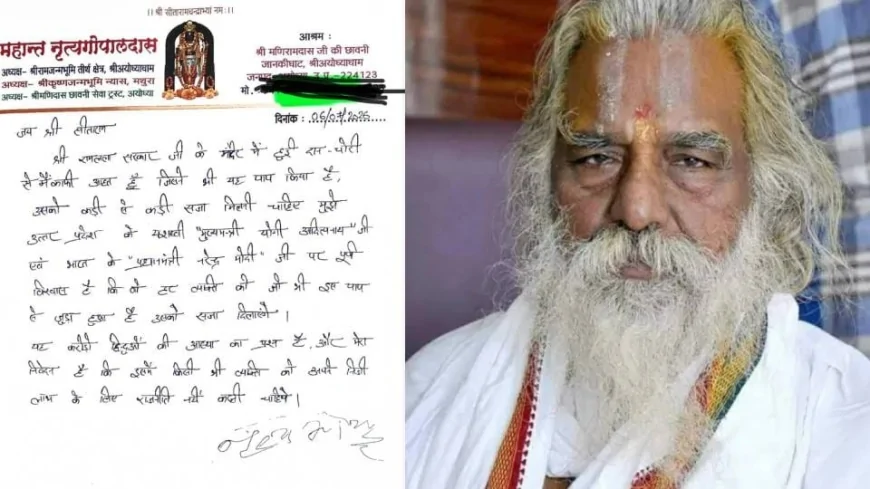 ॥ श्री सीतारामचन्द्राभ्यां नमः ॥
महान्त नृत्यगोपालदास
अध्यक्ष- श्रीरामजन्मभूमि तीर्थ क्षेत्र, श्रीअयोध्याधाम
अध्यक्ष- श्रीकृष्णजन्मभूमि न्यास, मथुरा
अध्यक्ष- श्रीमणिदास छावनी सेवा ट्रस्ट, अयोध्या
आश्रम :
श्री मणिरामदास जी की छावनी
जानकीघाट, श्रीअयोध्याधाम
जनपद अयोध्या उ.प्र.-224123
मो.
दिनांक : 06/07/2026
जय श्री सीताराम
श्री रामलला सरकार जी के मंदिर में हुई दान-चोरी
से मैं काफी आहत हूँ जिसने भी यह पाप किया है,
उसको कड़ी से कड़ी सजा मिलनी चाहिए मुझे
उत्तर प्रदेश के यशस्वी "मुख्यमन्त्री योगी आदित्यनाथ" जी
एवं भारत के "प्रधानमंत्री नरेन्द्र मोदी" जी पर पूर्ण
विश्वास है कि वो हर व्यक्ति को जो भी इस पाप
से जुड़ा हुआ है उसको सजा दिलाएंगे।
यह करोड़ो हिन्दुओं की आस्था का प्रश्न है, और मेरा
निवेदन है कि इसमें किसी भी व्यक्ति को अपने निजी
लाभ के लिए राजनीति नहीं करनी चाहिए।